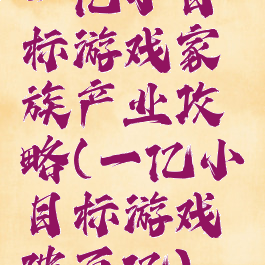 亿小目
标游戏家
族产业攻
略(一亿小
目标游戏